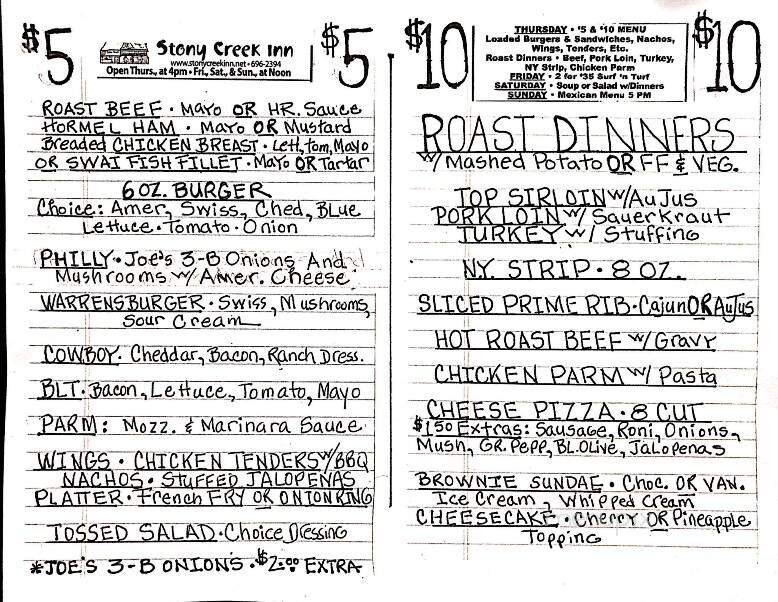 $5
Stony Creek Inn
www.stonycreekinn.net • 696-2394
Open Thurs., at 4pm • Fri., Sat., & Sun., at Noon
$5
ROAST BEEF • Mayo OR HR. Sauce
HORMEL HAM • Mayo OR Mustard
Breaded CHICKEN BREAST • Lett, tom, Mayo
OR SWAI FISH FILLET • Mayo OR Tartar
6 OZ. BURGER
Choice: Amer, Swiss, Ched, BLue
Lettuce • Tomato • Onion
PHILLY • Joe's 3-B Onions And
Mushrooms w/ Amer. Cheese
WARRENSBURGER • Swiss, Mushrooms,
Sour Cream
COWBOY • Cheddar, Bacon, Ranch Dress.
BLT • Bacon, Lettuce, Tomato, Mayo
PARM: Mozz. & Marinara Sauce
WINGS • CHICKEN TENDERS w/BBQ
NACHOS • STUFFED JALOPENAS
PLATTER • French FRY OR ONION RING
TOSSED SALAD • Choice Dressing
*JOE'S 3-B ONIONS • $2.00 EXTRA
$10
THURSDAY • $5 & $10 MENU
Loaded Burgers & Sandwiches, Nachos,
Wings, Tenders, Etc.
Roast Dinners • Beef, Pork Loin, Turkey,
NY Strip, Chicken Parm
FRIDAY • 2 for $35 Surf 'n Turf
SATURDAY • Soup or Salad w/Dinners
SUNDAY • Mexican Menu 5 PM
$10
ROAST DINNERS
w/ Mashed Potato OR FF & VEG.
TOP SIRLOIN w/ Au Jus
PORK LOIN w/ Sauerkraut
TURKEY w/ Stuffing
NY. STRIP • 8 OZ.
SLICED PRIME RIB • Cajun OR AuJus
HOT ROAST BEEF w/ Gravy
CHICKEN PARM w/ Pasta
CHEESE PIZZA • 8 CUT
$1.50 Extras: Sausage, Roni, Onions,
Mush, GR. Pepp, BL. Olive, Jalopenas
BROWNIE SUNDAE • Choc. OR VAN.
Ice Cream, Whipped Cream
CHEESECAKE • Cherry OR Pineapple
Topping